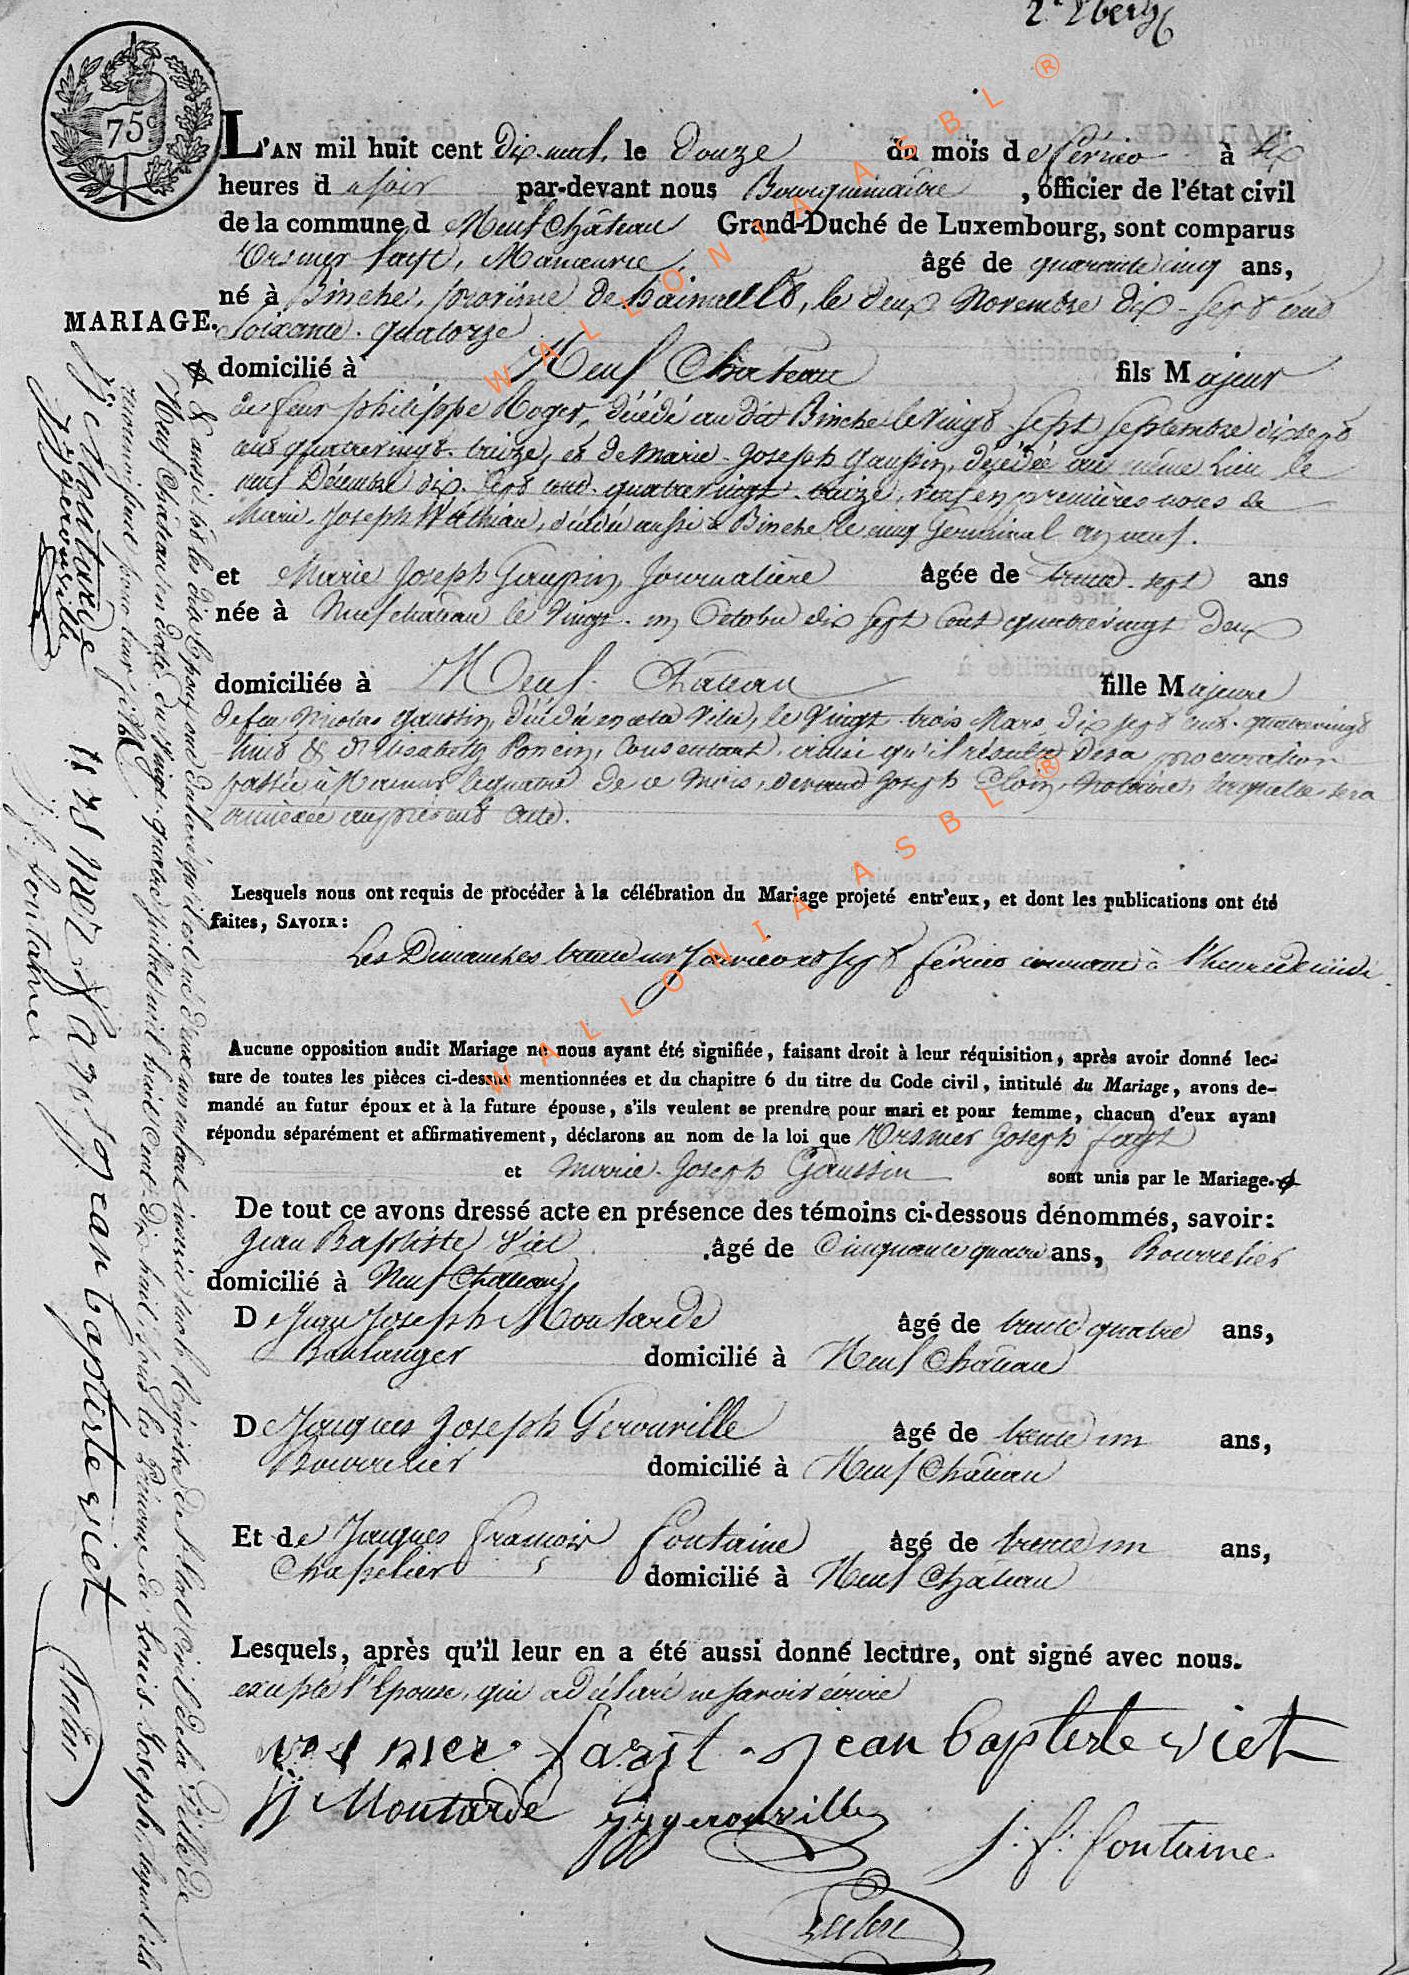 75c
L'AN mil huit cent dix-neuf, le Douze du mois de février à six
heures d u soir par-devant nous Bourguemaître, officier de l'état civil
de la commune d Neuf Château Grand-Duché de Luxembourg, sont comparus
Orsmer fayt, Manœuvre âgé de quarante cinq ans,
né à Binche, province de hainault, le deux Novembre dix-sept cent
Soixante-quatorze
MARIAGE.
domicilié à Neuf Château fils Majeur
de feux philippe Roger, décédé au dit Binche le vingt sept septembre dix sept
cent quatrevingt-treize, et de Marie-Joseph Gaussin, décédée au même Lieu le
Décembre dix-sept cent-quatrevingt-treize, veuf en premières noces de
Marie-Joseph, décédée aussi à Binche le cinq Germinal an neuf.
et Marie Joseph Gaussin, Journalière âgée de trente-sept ans
née à Neufchateau le Vingt-un Octobre dix sept cent quatrevingt Deux
domiciliée à Neuf-Château fille Majeure
de feu Nicolas Gaussin, décédé en cette Ville, le Vingt-trois Mars dix sept cent-quatrevingt
huit & d'Elisabeth Poncin, Consentant, ainsi qu'il résulte de sa procuration
passée à Namur le quatre de ce Mois, devant Joseph Eloin, Notaire, laquelle sera
annexée au présent acte.
Lesquels nous ont requis de procéder à la célébration du Mariage projeté entr'eux, et dont les publications ont été
faites, SAVOIR:
Les Dimanches trente un Janvier et sept février courant à l'heure de midi
Aucune opposition audit Mariage ne nous ayant été signifiée, faisant droit à leur réquisition, après avoir donné lec-
ture de toutes les pièces ci-dessus mentionnées et du chapitre 6 du titre du Code civil, intitulé du Mariage, avons de-
mandé au futur époux et à la future épouse, s'ils veulent se prendre pour mari et pour femme, chacun d'eux ayant
répondu séparément et affirmativement, déclarons au nom de la loi que Orsmer Joseph fayt
et Marie-Joseph Gaussin sont unis par le Mariage.
De tout ce avons dressé acte en présence des témoins ci-dessous dénommés, savoir:
Jean Baptiste Viet âgé de Cinquante quatre ans, Bourrelier
domicilié à Neuf Château
De Jean Joseph Moutarde âgé de trente quatre ans,
Boulanger domicilié à Neuf Château
De Jacques Joseph Gerouville âgé de trente un ans,
Bourrelier domicilié à Neuf Château
Et de Jacques francois fontaine âgé de trente un ans,
Chapelier domicilié à Neuf Château
Lesquels, après qu'il leur en a été aussi donné lecture, ont signé avec nous.
excepté l'Epouse, qui a déclaré ne savoir écrire
orsmer fayt jean baptiste viet
jj Moutarde jjgerouville
j: f: fontaine
& aussi tôt les dits Epoux ont déclaré qu'il est né d'eux un enfant inscrit sur le Régistre de l'Etat civil de la Ville de
Neuf Château en date du Vingt-quatre Juillet mil huit Cent-dix huit, sous les Prénoms de Louis-Joseph, lequel ils
reconnoissent pour leur fils
jj Moutarde
jjgerouville
orsmer fayt jean baptiste viet
j: f: fontaine
WALLONIA ASBL ®
WALLONIA ASBL ®